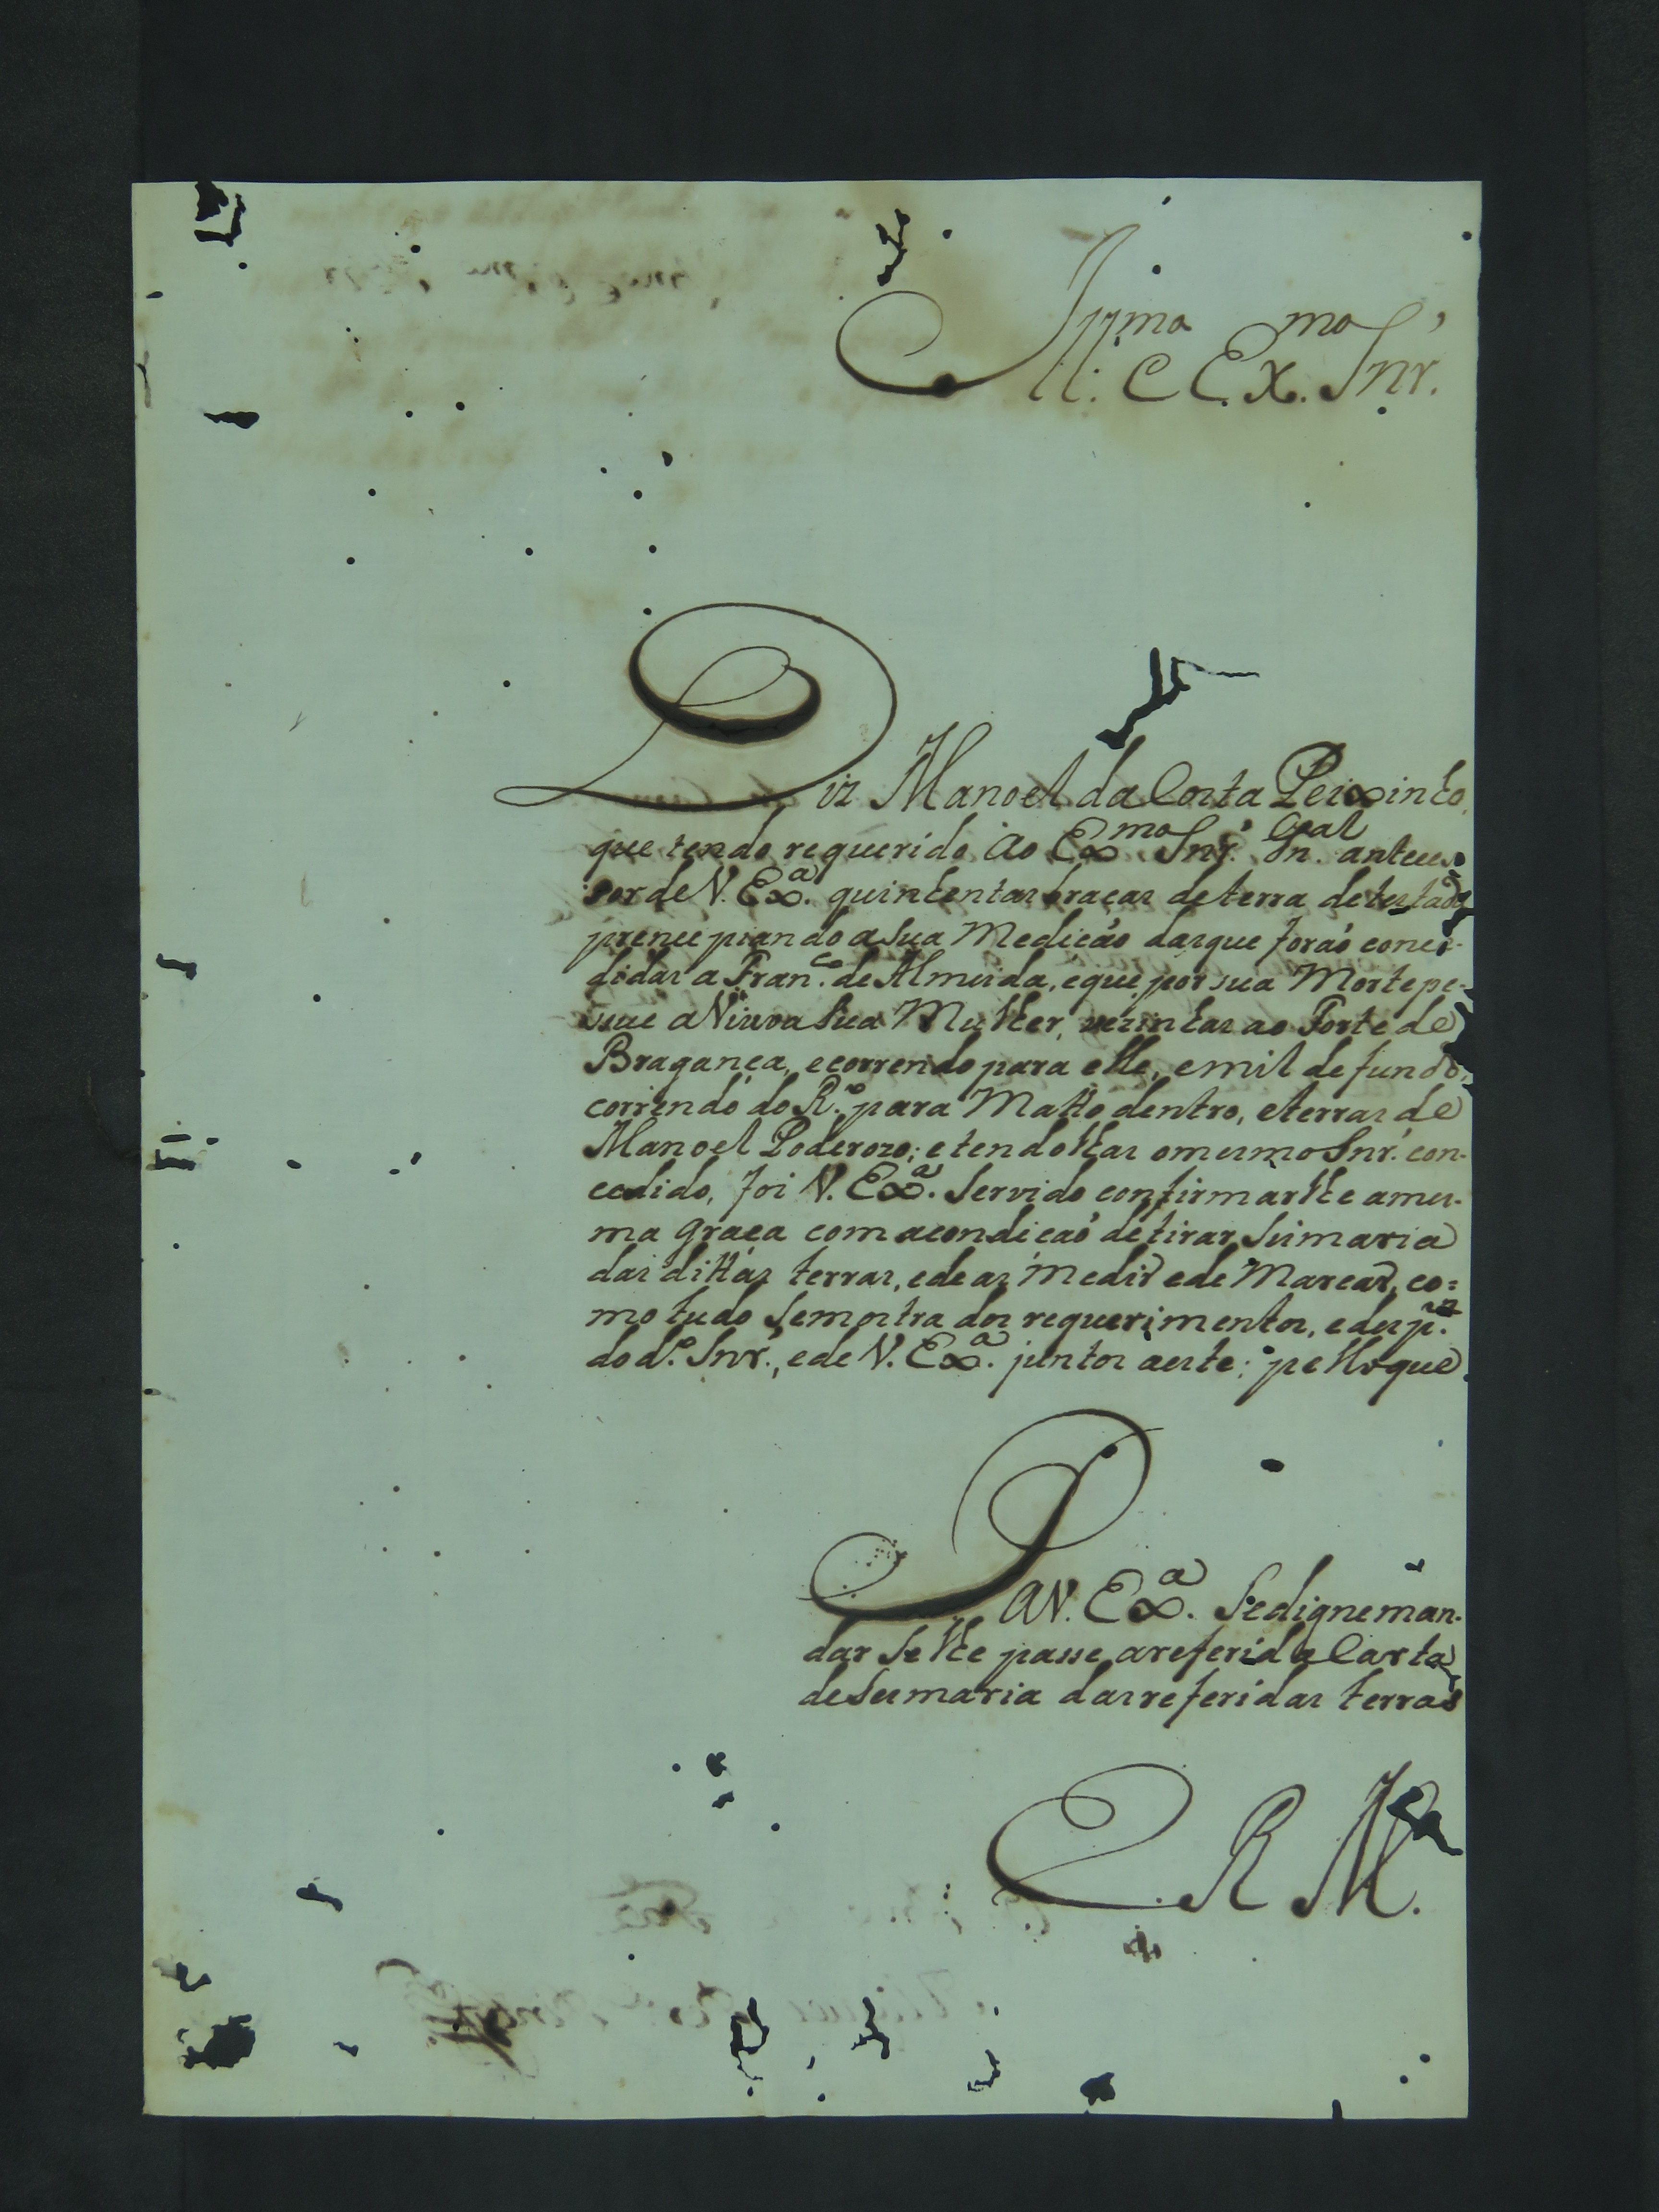 Ill.mo e Ex.mo Snr.
Diz Manoel da Costa Peixinho,
que tendo requerido ao Ex.mo Snr. Gn.al anteces-
sor de V. Ex.a quinhentas braças de terra de testada
princepiando a sua Medicáo das que foraó conce-
didas a Fran.co de Almeida, e que por sua Morte pe-
suue a Viuva sua Mulher, vezinhas ao Forte de
Bragança, e correndo para elle, e mil de fundo,
correndo do R.o para Matto dentro, e terras de
Manoel Poderozo; e tendolhas o mesmo Snr. con-
cedido, foi V. Ex.a Servido confirmarlhe a mes-
ma graça com a condicaó de tirar Sismaria
das dittas terras, e de as Medir e de Marcar, co=
mo tudo Se mostra dos requerimentos, e desp.os
do d.o Snr., e de V. Ex.a juntos a este; pello que
P a V. Ex.a Se digne man-
dar Se lhe passe a referida Carta
de Sesmaria das referidas terras
E R M.